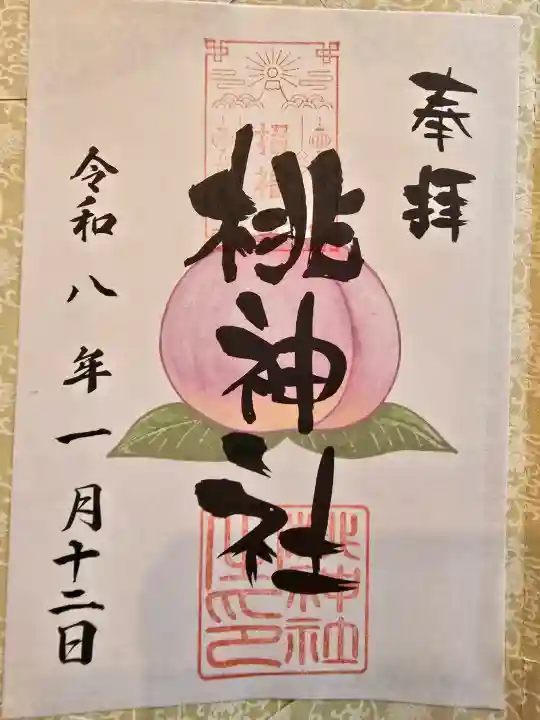 奉拝
桃神社
令和八年一月十二日
桃神社
之印